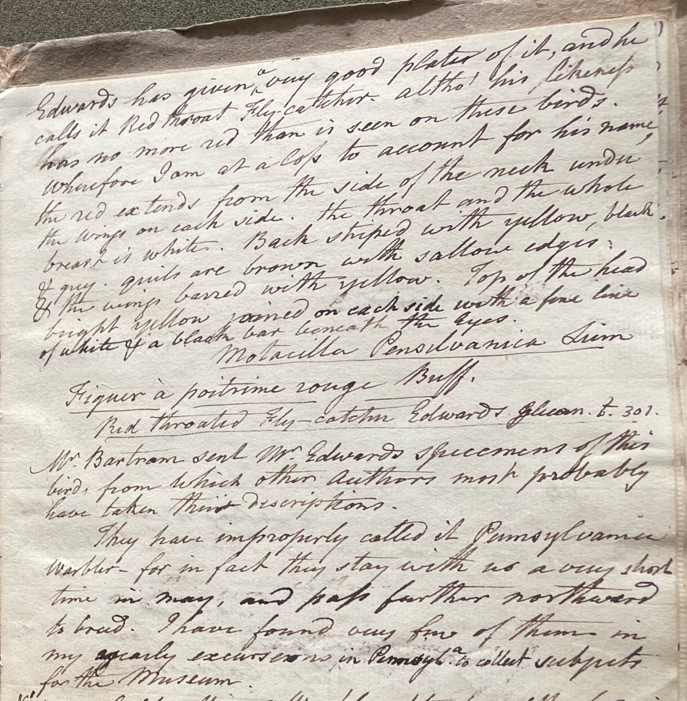 Edwards has given a very good plate of it, and he
calls it Red throat Fly-catcher. altho' his likeness
has no more red than is seen on these birds.
wherefore I am at a loss to account for his name,
the red extends from the side of the neck under
the wings on each side. the throat and the whole
breast is white. Back striped with yellow, black
& grey. quils are brown with sallow edges:
& the wings barred with yellow. Top of the head
bright yellow joined on each side with a fine line
of white & a black bar beneath the Eyes.
Motacilla Pensilvanica Linn
Figuier à poitrine rouge Buff.
Red throated Fly-catcher Edwards glean. t. 301.
Mr. Bartram sent Mr Edwards specimens of this
bird, from which other Authors most probably
have taken their descriptions.
They have improperly called it Pennsylvania
Warbler- for in fact they stay with us a very short
time in may, and pass further northward
to breed. I have found very few of them in
my yearly excursions in Pennsyla. to collect subjects
for the Museum.